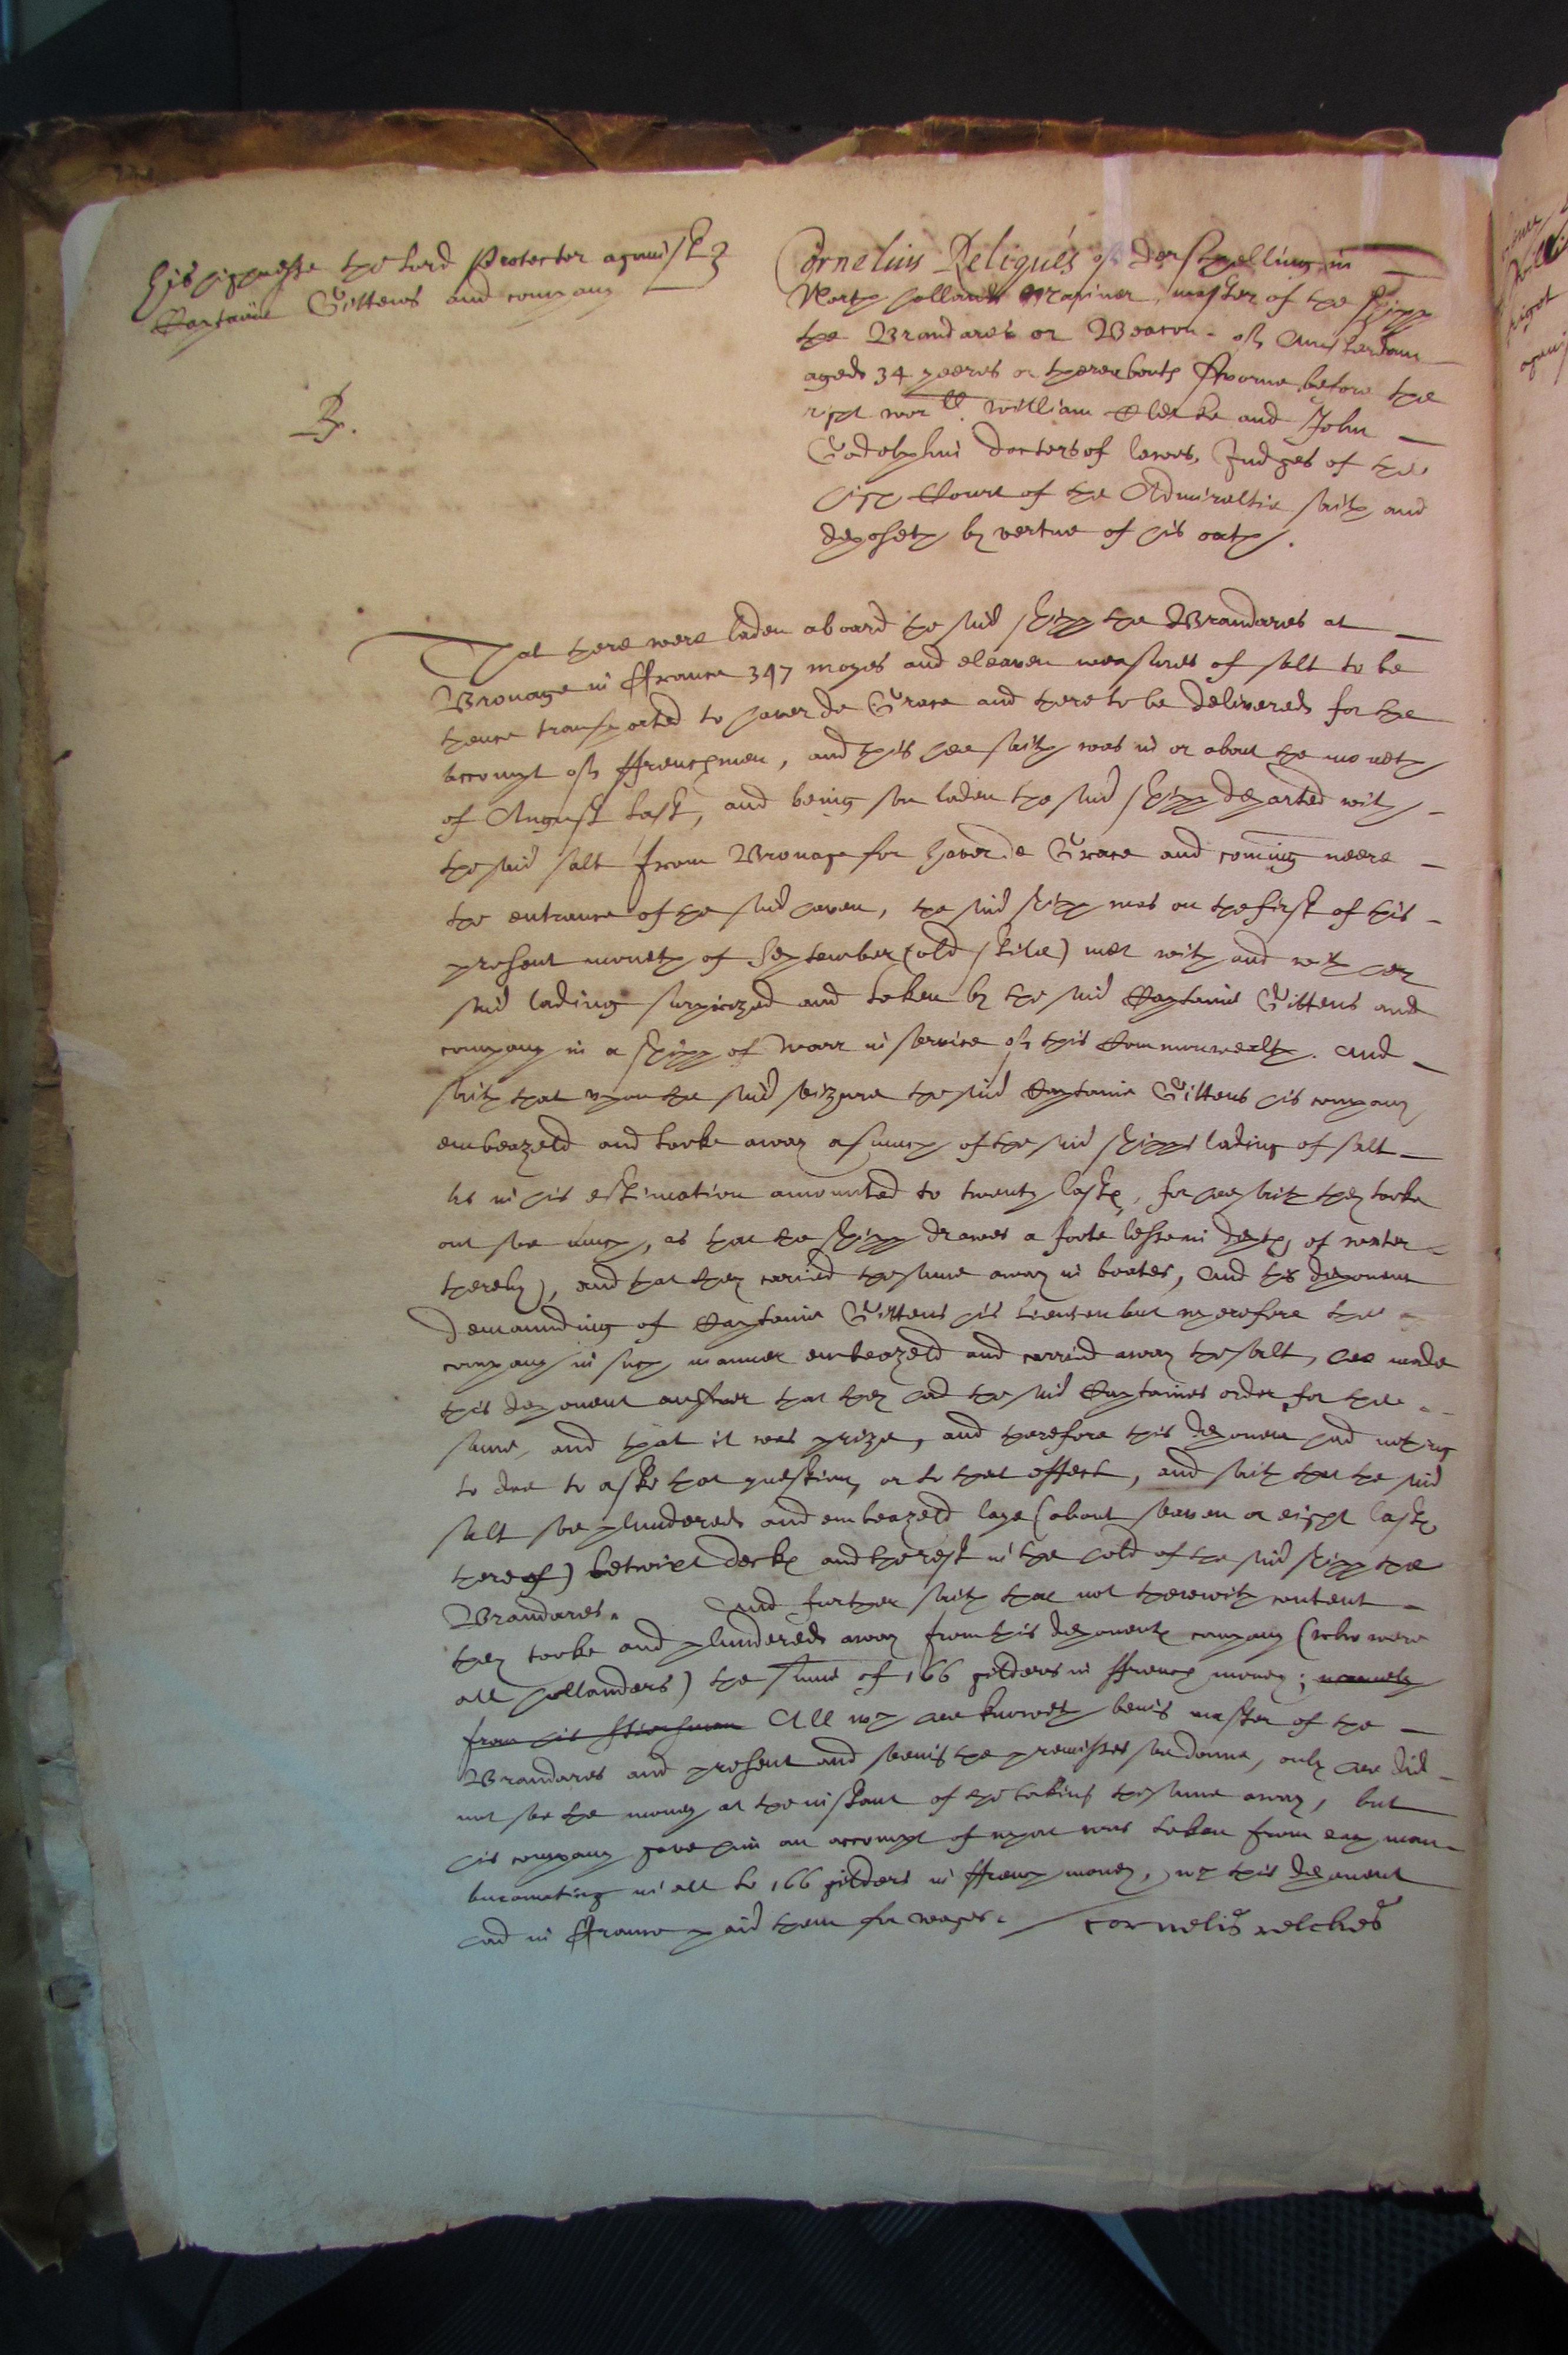 His highnesse the Lord Protector against
Captaine Gittens and company
B.
Cornelius Reliques of der Schelling in
North Holland Mariner, master of the shipp
the Brandares or Beacon of Amsterdam
aged 34 yeeres or thereabouts sworne before the
right worll. William Clerke and John
Godolphin doctors of lawes, Judges of the
high Court of the Admiraltie saith and
deposeth by vertue of his oath.
That there were laden aboard the said shipp the Brandares at
Brouage in ffrance 347 moyes and eleaven measures of salt to be
thence transported to haver de Grace and there to be delivered for the
accompt of ffrenchmen, and this hee saith was in or about the moneth
of August last, and being soe laden the said shipp departed with
the said salt from Brouage for haver de Grace and coming neere
the entrance of the said haven, the said shipp was on the first of this
present moneth of September (old stile) met with and with her
said lading surprized and taken by the said Captaine Gittens and
company in a shipp of warr in service of this Commonwealth. And
saith that upon the said seizure the said Captaine Gittens his company
embeazeld and tooke away asmuch of the said shipps lading of salt
as in his estimation amounted to twenty lasts, for hee saith they tooke
out soe much, as that the shipp drawes a foote lesse in depth of water
thereby), and that they carried the same away in boates, and this deponent
demaunding of Captaine Gittens his lieutenant wherefore the
company in such manner embeazeld and carried away the salt, hee made
this deponent answer that they had the said Captaines order for the
same, and that it was prize, and therefore this deponent had nothing
to doe to aske that question, or to that effect, and saith that the said
salt soe plundered and embeazeld laye (about seaven or eight lasts
thereof) betwixt decks and the rest in the hold of the said shipp the
Brandares. And further saith that not therewith content
they tooke and plundered away from this deponents company (who were
all hollanders) the summe of 166 gilders in ffrench money; namely
from his All which hee knoweth being master of the
Brandares and present and seeing the premisses soe donne, only hee did
not see the money at the instant of the taking the same away, but
his company gave him an accompt of what was taken from each man
amounting in all to 166 gilders in ffrench money, which this deponent
had in ffrance paid them for wages.
cornelis relches